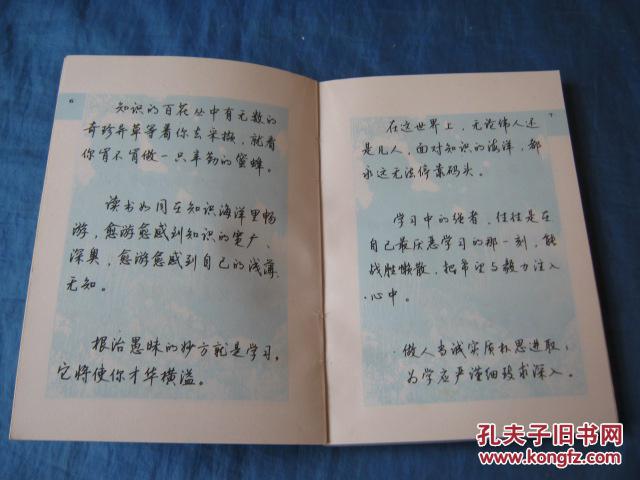 6
知识的百花丛中有无数的
奇珍奇草等着你去采撷,就看
你肯不肯做一只辛勤的蜜蜂。
读书如同在知识海洋里畅
游,愈游愈感到知识的宽广、
深奥,愈游愈感到自己的浅薄、
无知。
根治愚昧的妙方就是学习,
它将使你才华横溢。
7
在这世界上,无论伟人还
是凡人,面对知识的海洋,都
永远无法停靠码头。
学习中的强者,往往是在
自己最厌恶学习的那一刻,能
战胜懒散,把希望与毅力注入
心中。
做人当诚实质朴思进取,
为学应严谨细致求深入。
孔夫子旧书网
www.kongfz.com